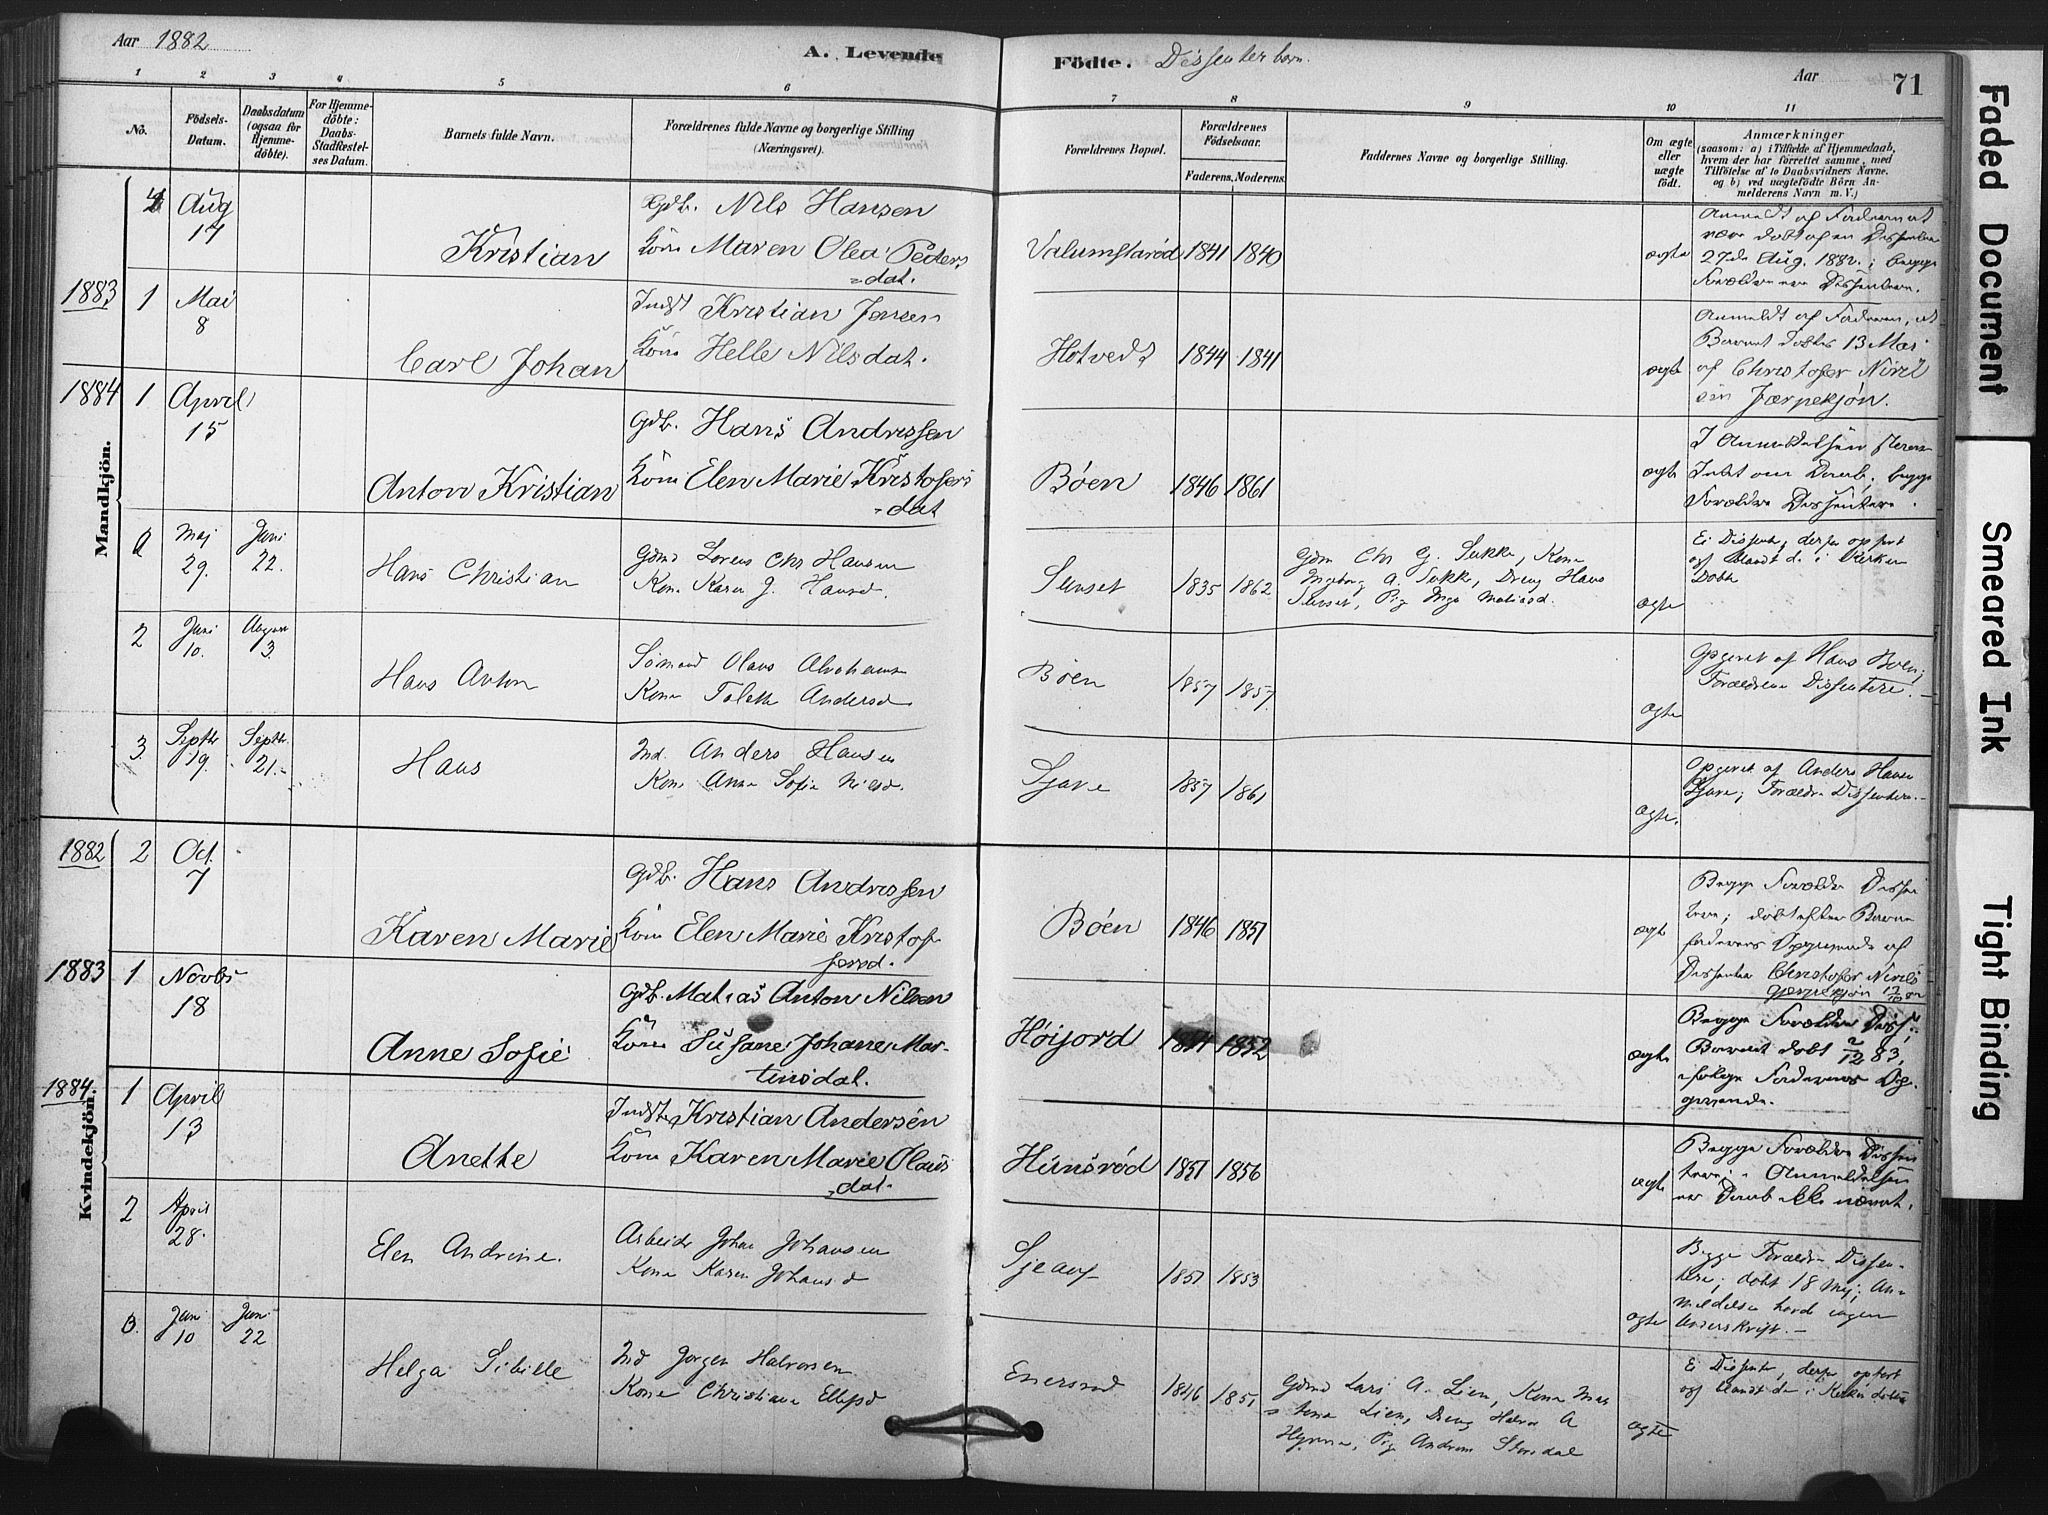 Aar 1882
A. Levende Födte. Dissenterbørn.
Aar
71
1 2 3 4 5 6 7 8 9 10 11
No.
Födsels-Datum.
Daabsdatum (ogsaa for Hjemmedöbte).
For Hjemmedöbte: Daabs-Stadfæstelses Datum.
Barnets fulde Navn.
Forældrenes fulde Navne og borgerlige Stilling (Næringsvei).
Forældrenes Bopæl.
Forældrenes Födselsaar.
Faderens. Moderens.
Faddernes Navne og borgerlige Stilling.
Om ægte eller uægte födt.
Anmærkninger
(saasom: a) i Tilfælde af Hjemmedaab,
hvem der har forrettet samme, med
Tilföielse af to Daabsvidners Navne.
og b) ved uægtefödte Börn Anmelderens Navn m. V.)
Mandkjön.
4 Aug 17 Kristian
Gdb. Nils Hansen
Kone Maren Olea Peders
dat.
1841 1840 ægte
27de Aug. 1882. ; begge
Forældrene ere Dissentere.
1883 1 Mai 8 Carl Johan
Indst Kristian Jensen
Kone Helle Nilsdat.
Hotvedt 1844 1841 ægte
Anmeldt af Faderen, at
Barnet døbtes 13 Mai
af Christofer Nirel
Jærpekjøn.
1884 1 April 15 Anton Kristian
Gdb. Hans Andressen
Kone Elen Marie Kristofers
dat
Bøen 1846 1861 ægte
Intet om Daab; begge
Forældre Dissentere.
Maj 29. Juni 22. Hans Christian
Gdmd Lorens Chr Hansen
Kone Karen J. Hansd.
Sunset 1835 1862
Gdm Chr G. Sukke, Kone
Ingeborg A. Sukke, Dreng Hans
Sunset, Pig Inga
ægte
Ei Dissenter, derfor opført
og blandt de i Kirken
Døbte
2 Juni 10. August 3. Hans Anton
Sømand Olaus Abrahamsen
Kone Tolette Andersd
Bøen 1857 1857. ægte
Opgivet af Hans Boen;
Forældrene Dissentere. -
3. Septbr 19. Septbr. 21. Hans
Ind. Anders Hansen
Kone Anne Sofie Nielsd.
Gjave 1857 1861 ægte.
Opgivet af Anders Hansen
Gjave; Forældre Dissentere. -
Kvindekjön.
1882 2 Oct. 7 Karen Marie
Gdb. Hans Andressen
Kone Elen Marie Kristof
fersd.
Bøen 1846 1851 ægte
Begge Forældre Dissen
tere; døbt efter Barne
faderens Opgivende af
Dissenter Christofer Nirels
1883 1 Novbr 18 Anne Sofie
Gdb. Matias Anton Nilsen
Kone Susane Johane Mar-
tinsdat.
Høijord 1852 ægte
Begge Forældre Diss;
Barnet døbt 2/12 83,
ifølge Faderens Op-
givende.
1884. 1 April 13 Anette
Indst Kristian Andersen
Kone Karen Marie Olaus
dat.
Hunsrød 1851 1856 ægte
Begge Forældre Dissen
tere; i Anmeldelsen
er Daab ikke nævnt.
2 April 28. Elen Andrine.
Arbeider Johan Johansen
Kone Karen Johansd
Gjeaug 1851 1853 ægte
Begge Forældre Dissen-
tere; døbt 18 Mej; An-
meldelsen havde ingen
Underskrift. -
Juni 10 Juni 22 Helga Sibille
Ind Jørgen Halvorsen
Kone Christiane Ellefsd
Enersrød 1846 1851
Gdmd Lars A. Lien, Kone
Lien, Dreng Halvor A
Pig Andrine Stordal
ægte
Ei Dissenter, derfor opført
og blandt de i Kirken døbte
Faded Document
Smeared Ink
Tight Binding